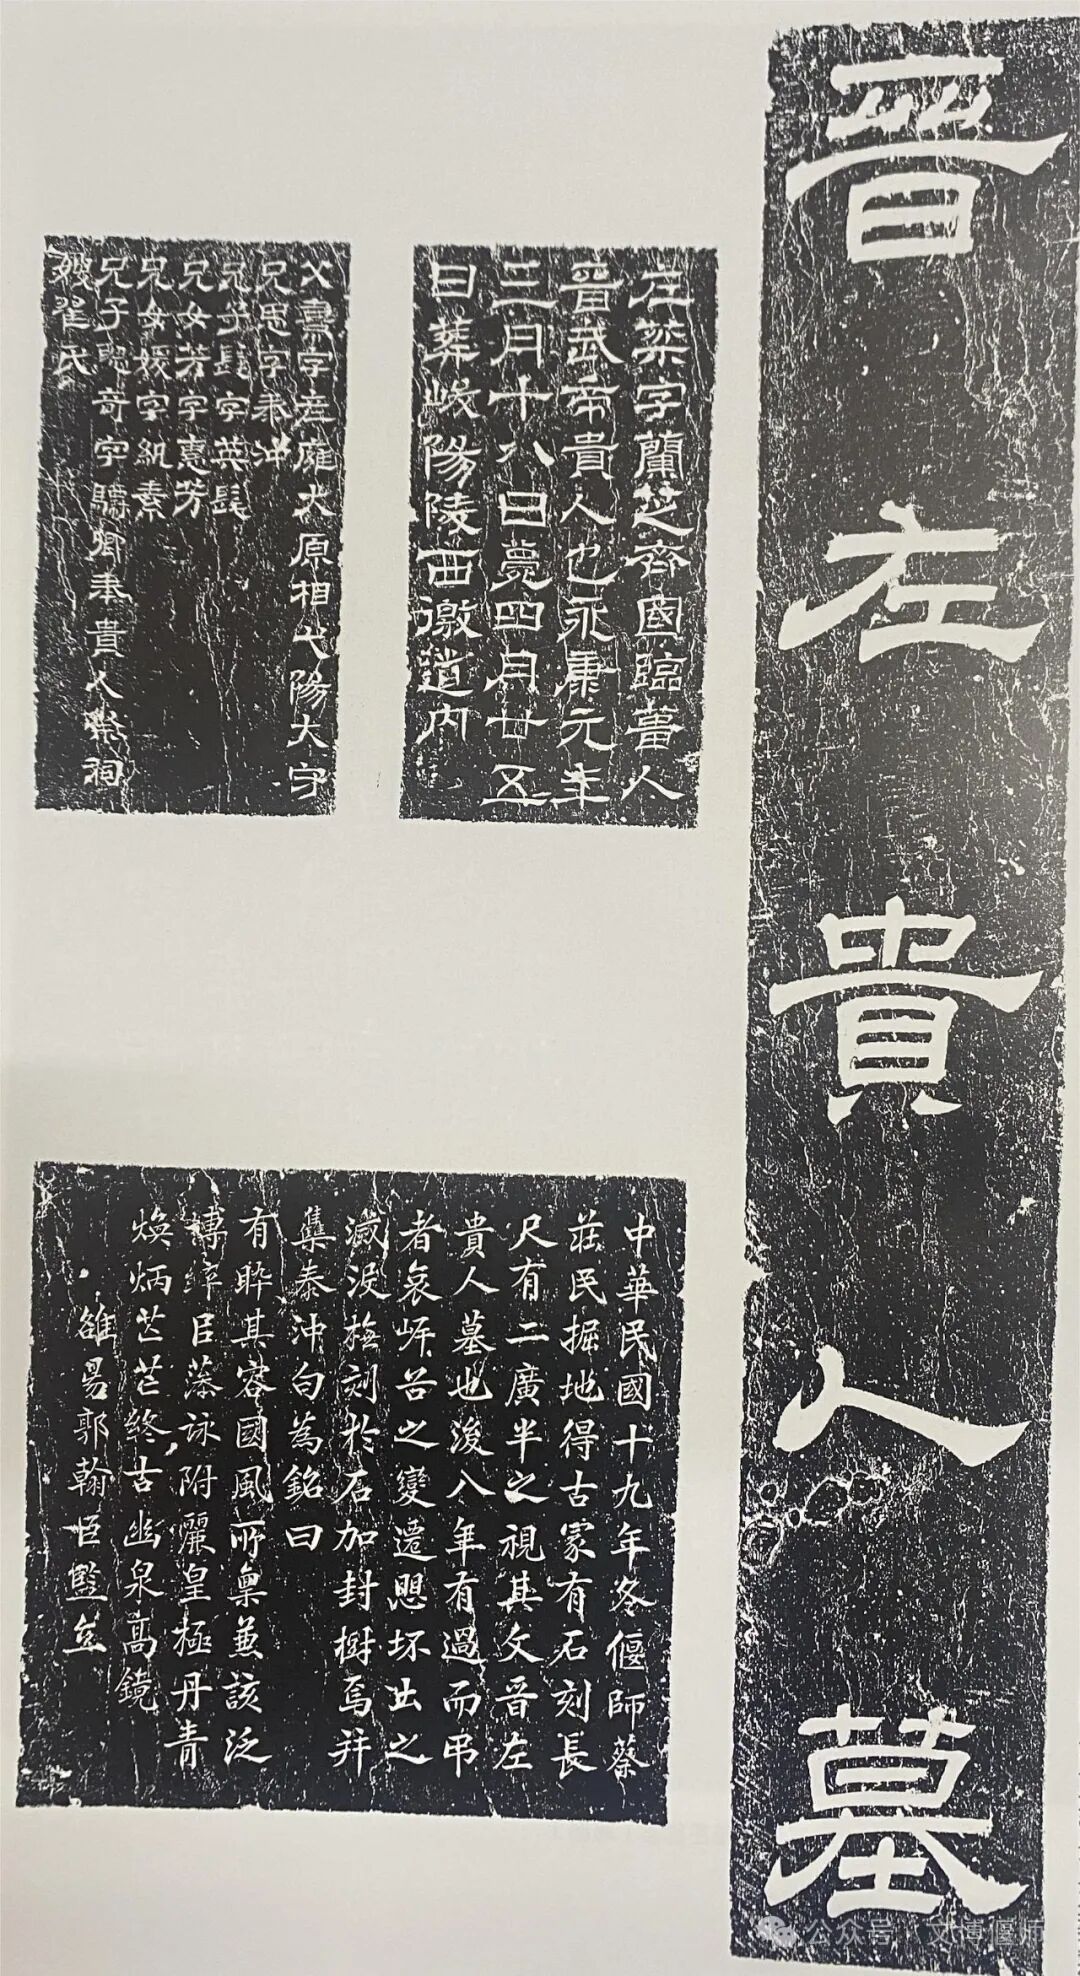 晋左貴人墓
左棻字蘭芝齊國臨菑人
晋武帝貴人也永康元年
三月十八日薨四月廿五
日葬峻陽陵西徼道内
父熹字彦雍太原相弋陽太守
兄思字泰沖
兄子髦字英髦
兄女芳字惠芳
兄女媛字紈素
兄子聰奇字驃卿奉貴人祭祠
嫂翟氏
中華民國十九年冬偃師蔡
莊民掘地得古冢有石刻長
尺有二廣半之視其文晋左
貴人墓也後八年有過而弔
者哀岸谷之變遷愳坏出之
滅橅刻於石加封樹焉并
集泰沖句為銘曰
有晬其容國風所稟兼該泛
博臣藻詠附麗皇極丹青
煥炳芒芒終古幽泉高鏡
雒昜郭翰臣監立
公众号·文博偃师